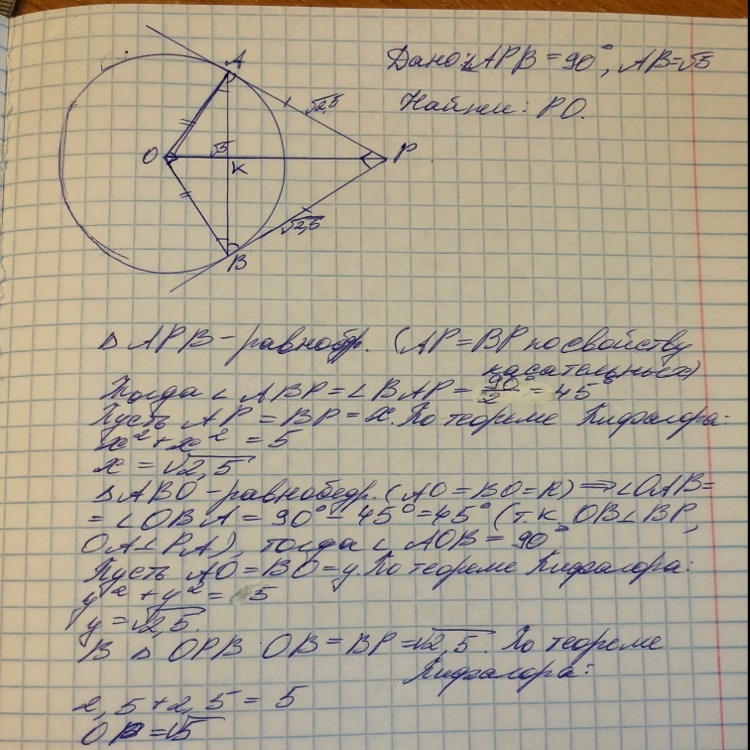 Дано: ∠APB = 90°, AB=√5
Найти: PO.
A
√2,5
O
√5
K
P
√2,5
B
△ APB - равнобедр. (AP = BP по свойству
касательных)
Тогда ∠ ABP = ∠ BAP = 90°/2 = 45°
Пусть AP = BP = x. По теореме Пифагора:
x² + x² = 5
x = √2,5
△ ABO - равнобедр. (AO = BO = R) ⇒ ∠OAB =
= ∠ OBA = 90° - 45° = 45° (т.к. OB⊥BP,
OA⊥PA), тогда ∠ AOB = 90°
Пусть AO = BO = y. По теореме Пифагора:
y² + y² = 5
y = √2,5.
В △ OPB OB = BP = √2,5. По теореме
Пифагора:
2,5 + 2,5 = 5
OP = √5